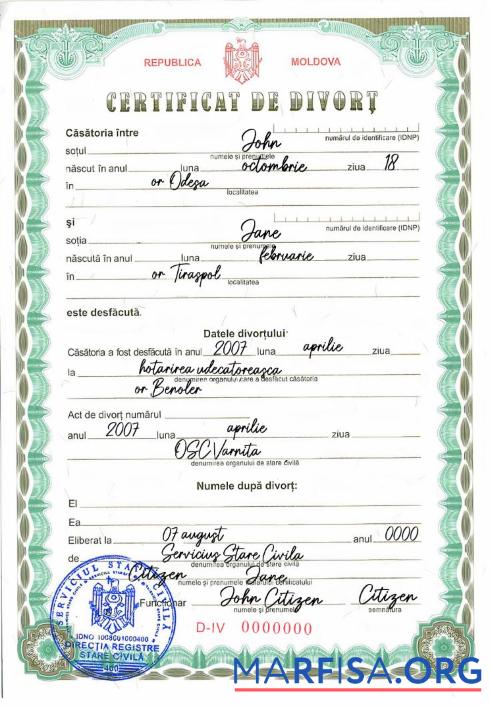 REPUBLICA MOLDOVA
CERTIFICAT DE DIVORȚ
Căsătoria între
numărul de identificare (IDNP)
soțul John
numele și prenumele
născut în anul luna octombrie ziua 18
în or Odesa
localitatea
și
numărul de identificare (IDNP)
soția Jane
numele și prenumele
născută în anul luna februarie ziua
în or Tiraspol
localitatea
este desfăcută.
Datele divorțului:
Căsătoria a fost desfăcută în anul 2007 luna aprilie ziua
la hotarirea udecatoreasca
denumirea organului care a desfăcut căsătoria
or Benoler
Act de divorț numărul
anul 2007 luna aprilie ziua
OSC Varnita
denumirea organului de stare civilă
Numele după divorț:
El
Ea
Eliberat la 07 august anul 0000
de Servicius Stare Civila
denumirea organului de stare civilă
Citizen Jane
numele și prenumele titularului certificatului
Funcționar John Citizen Citizen
numele și prenumele semnătura
D-IV 0000000
SERVICIUL STARE CIVILĂ
IDNO 1008601000400
DIRECȚIA REGISTRE
STARE CIVILĂ
400
MARFISA.ORG